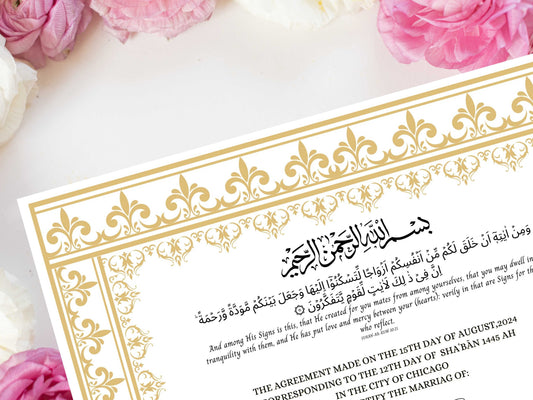 بسم الله الرحمن الرحيم
وَمِنْ اٰيٰتِهٖٓ اَنْ خَلَقَ لَكُمْ مِّنْ اَنْفُسِكُمْ اَزْوَاجًا لِّتَسْكُنُوْٓا اِلَيْهَا وَجَعَلَ بَيْنَكُمْ مَّوَدَّةً وَّرَحْمَةً ۗ
اِنَّ فِيْ ذٰلِكَ لَاٰيٰتٍ لِّقَوْمٍ يَّتَفَكَّرُوْنَ
And among His Signs is this, that He created for you mates from among yourselves, that you may dwell in
tranquility with them, and He has put love and mercy between your (hearts): verily in that are Signs for
who reflect.
(QURAN AR- RUM 30:21)
THE AGREEMENT MADE ON THE 15TH DAY OF AUGUST,2024
ORRESPONDING TO THE 12TH DAY OF SHA'BĀN 1445 AH
IN THE CITY OF CHICAGO
TIFY THE MARRIAG OF: